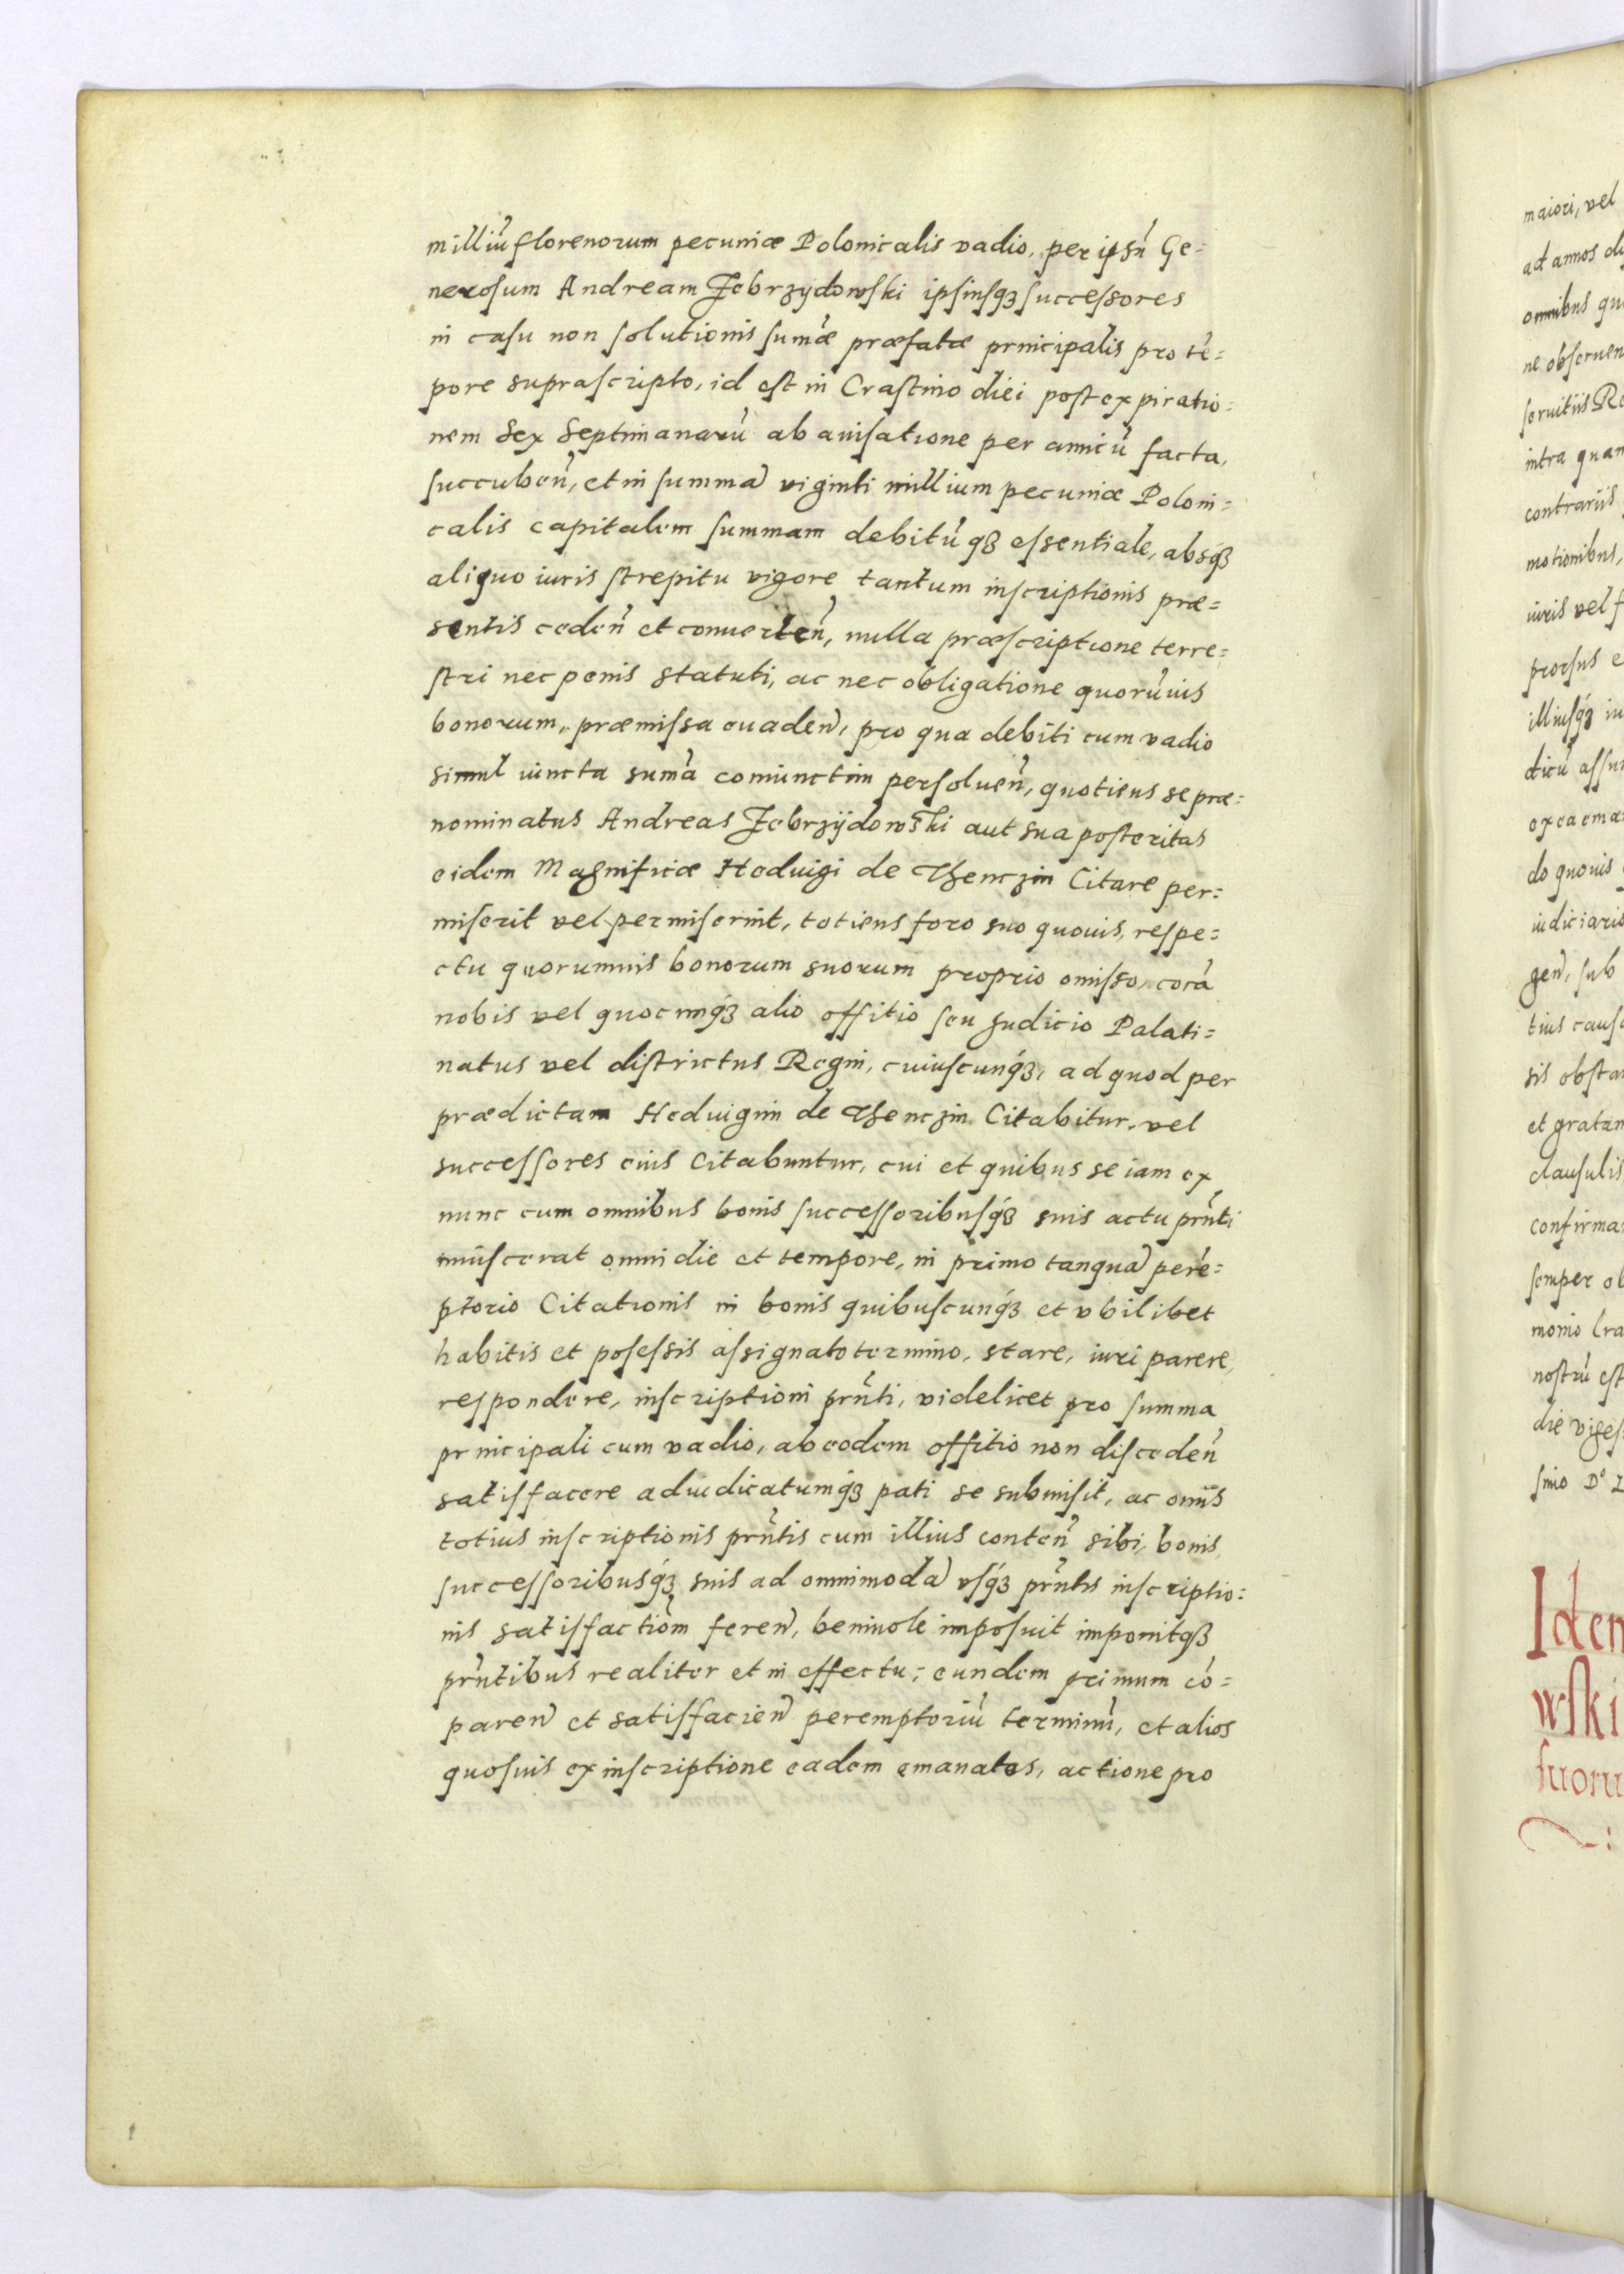 milliū florenorum pecuniæ Polonicalis vadio, per ipsū Ge=
nerosum Andream Zebrzydowski ipsiusqꝫ successores
in casu non solutionis sum̄æ præfatæ principalis pro tē=
pore suprascripto, id est in Crastino diei post expiratio=
nem Sex Septimanarū ab auisatione per amicū facta,
succuben̄, et in summa viginti millium pecuniæ Poloni=
calis capitalem summam debitū qꝫ essentiale, absqꝫ
aliquo iuris strepitu vigore tantum inscriptionis præ=
sentis ceden̄ et conuerten̄, nulla præscriptione terre=
stri nec penis statuti, ac nec obligatione quorūuis
bonorum, præmissa euaden̄, pro qua debiti cum vadio
simul iuncta sum̄a coniunctim persoluen̄, quotiens se præ=
nominatus Andreas Zebrzÿdowski aut sua posteritas
eidem Magnificæ Heduigi de Thenczin Citare per=
miserit vel permiserint, totiens foro suo quouis, respe=
ctu quorumuis bonorum suorum proprio omisso, corā
nobis vel quocunqꝫ alio offitio seu Judicio Palati=
natus vel districtus Regni, cuiuscunqꝫ, ad quod per
prædictam Heduigim de Thenczin Citabitur, vel
successores eius Citabuntur, cui et quibus se iam ex
nunc cum omnibus bonis successoribusqꝫ suis actu prn̄ti
inuiscerat omni die et tempore, in primo tanquā perē=
ptorio Citationis in bonis quibuscunqꝫ et vbilibet
habitis et posessis assignato termino, stare, iuri parere,
respondere, inscriptioni prn̄ti, videlicet pro summa
principali cum vadio, ab eodem offitio non disceden̄
satisfacere adiudicatumqꝫ pati se submisit, ac onūs
totius inscriptionis prn̄tis cum illius conten̄ sibi, bonis,
successoribusqꝫ suis ad omnimodā vsqꝫ prn̄tis inscriptio=
nis satisfactiōm feren̄, beniuole imposuit imponitqꝫ
prn̄tibus realiter et in effectu; eundem primum cō=
paren̄ et satisfacien̄ peremptoriū terminū, et alios
quosuis ex inscriptione eadem emanatos, actione pro
maiori, vel
ad annos
omnibus
ne obseruen
seruitiis
intra quam
contrariis
motionibus,
iuris vel
prorsus
illiusqꝫ
dicū
ex ea
do quouis
iudiciario
gen̄, sub
tius
sis
et gratam
clausulis
confirma
semper
monio
nostrū
die
D°
Idem
wski
suoru